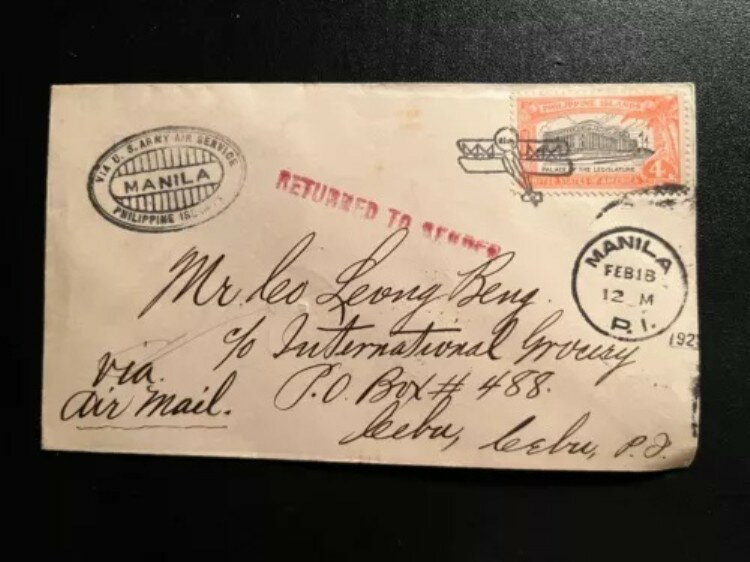 VIA U. S. ARMY AIR SERVICE
MANILA
PHILIPPINE
RETURNED TO SENDER
PHILIPPINE ISLANDS
PALACE THE LEGISLATURE
UNITED STATES OF AMERICA 4
MANILA
FEB 18
12 M
P.I.
192
Mr Co Leong Beng.
c/o International Grocery
P.O. Box # 488.
Cebu, Cebu, P.I.
via
air mail.